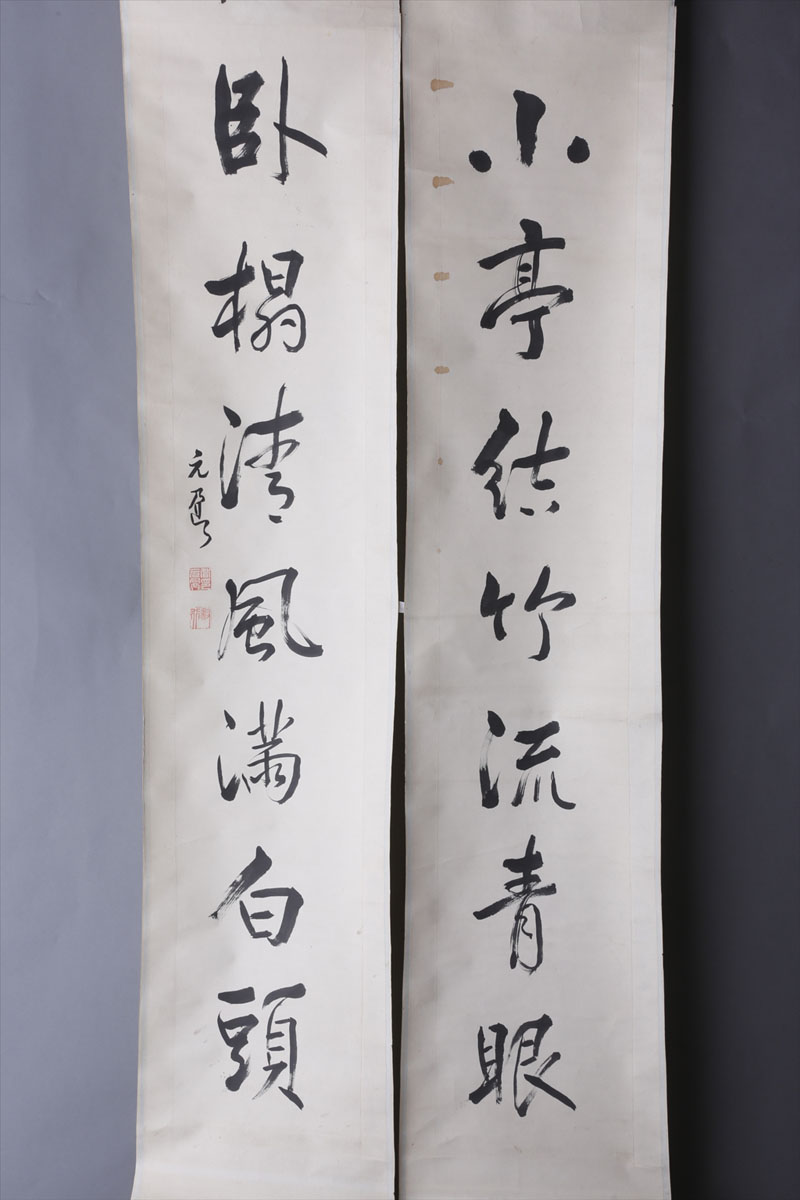 小亭結竹流青眼
臥榻清風滿白頭